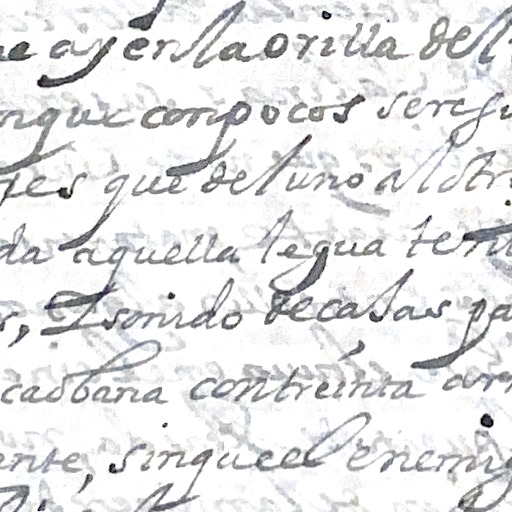 e ay en la orilla del
nque con pocos se resu
tes que del uno al otr
da aquella legua ten
r, I sonido de casas pa
caobana con treinta arr
ente, sin que el enemig